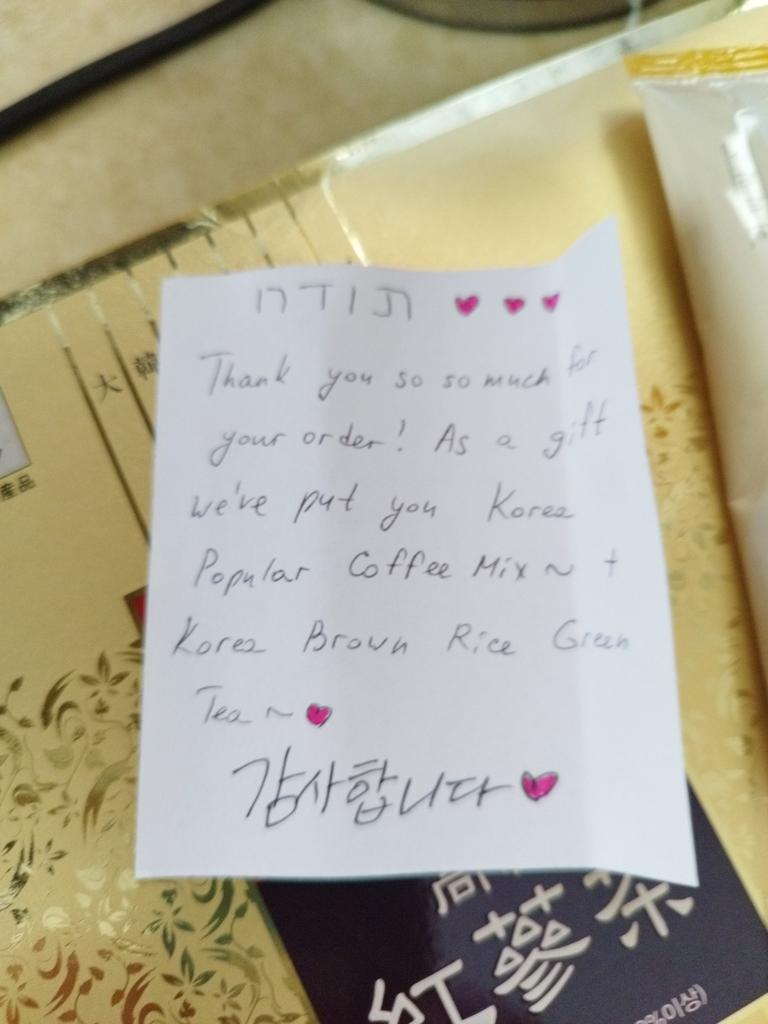 תודה
Thank you so so much for
your order! As a gift
we've put you Korea
Popular Coffee Mix ~ +
Korea Brown Rice Green
Tea ~
감사합니다
大
韓
産品
紅蔘茶
이상)